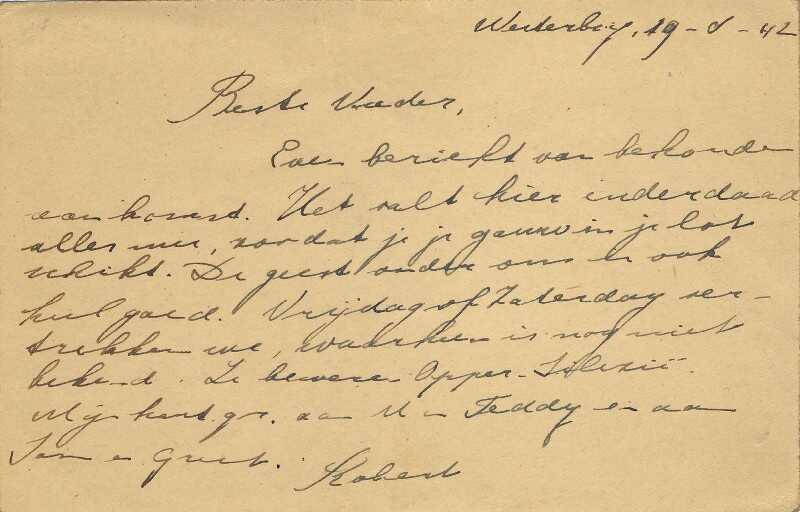 Westerbork, 19-8-42
Beste Vader,
Even bericht van behouden
aankomst. Het valt hier inderdaad
alles mee, zoodat je je gauw in je lot
schikt. De geest onder ons is ook
heel goed. Vrijdag of Zaterdag ver-
trekken we, waarheen is nog niet
bekend. Ze beweren Opper-Silezië.
Mijn hart. gr. aan U en Teddy en aan
en Greet.
Robert